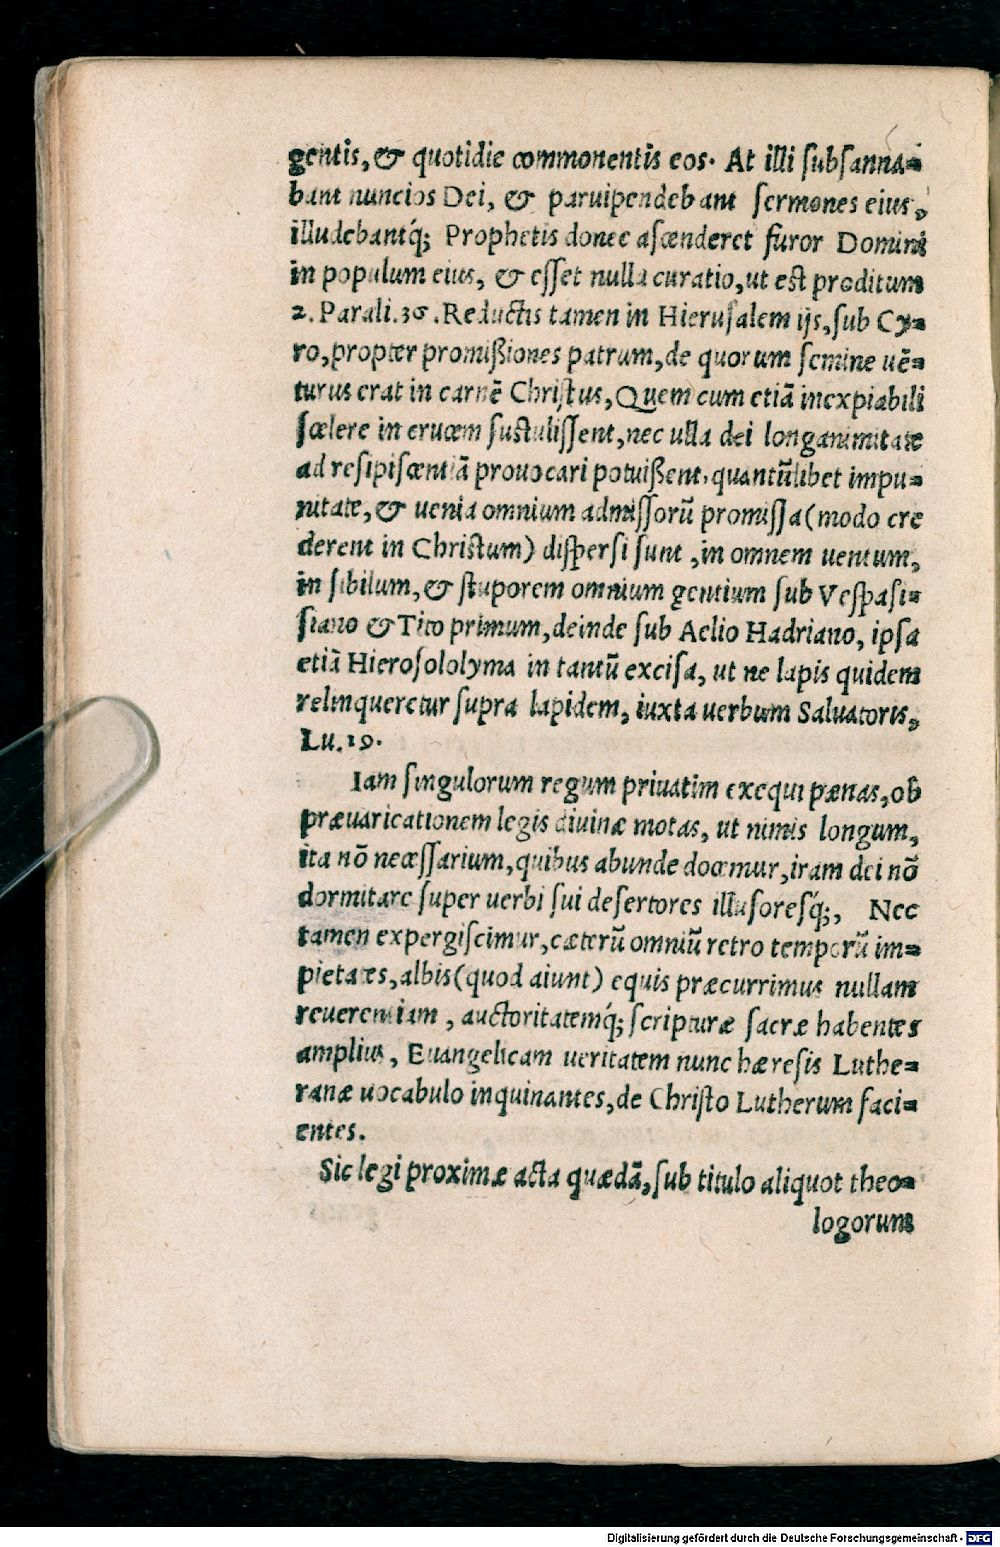 gentis, & quotidie commonentis eos. At illi subsanna=
bant nuncios Dei, & paruipendebant sermones eius,
illudebantq́; Prophetis donec ascenderet furor Domini
in populum eius, & esset nulla curatio, ut est proditum
2. Parali. 36. Reductis tamen in Hierusalem ijs, sub Cy=
ro, propter promißiones patrum, de quorum semine uē=
turus erat in carnē Christus, Quem cum etiā inexpiabili
scelere in crucem sustulissent, nec ulla dei longanimitate
ad resipiscentiā prouocari potuißent, quantūlibet impu=
nitate, & uenia omnium admissorū promissa (modo cre
derent in Christum) dispersi sunt, in omnem uentum,
in sibilum, & stuporem omnium gentium sub Vespasi=
siano & Tito primum, deinde sub Aelio Hadriano, ipsa
etiā Hierosololyma in tantū excisa, ut ne lapis quidem
relinqueretur supra lapidem, iuxta uerbum Saluatoris,
Lu. 19.
Iam singulorum regum priuatim exequi pœnas, ob
præuaricationem legis diuinæ motas, ut nimis longum,
ita nō necessarium, quibus abunde docemur, iram dei nō
dormitare super uerbi sui desertores illusoresq́;, Nec
tamen expergiscimur, cæterū omniū retro temporū im=
pietates, albis (quod aiunt) equis præcurrimus nullam
reuerentiam, auctoritatemq́; scripturæ sacræ habentes
amplius, Euangelicam ueritatem nunc hæresis Luthe=
ranæ uocabulo inquinantes, de Christo Lutherum faci=
entes.
Sic legi proximæ acta quædā, sub titulo aliquot theo=
logorum
Digitalisierung gefördert durch die Deutsche Forschungsgemeinschaft - DFG